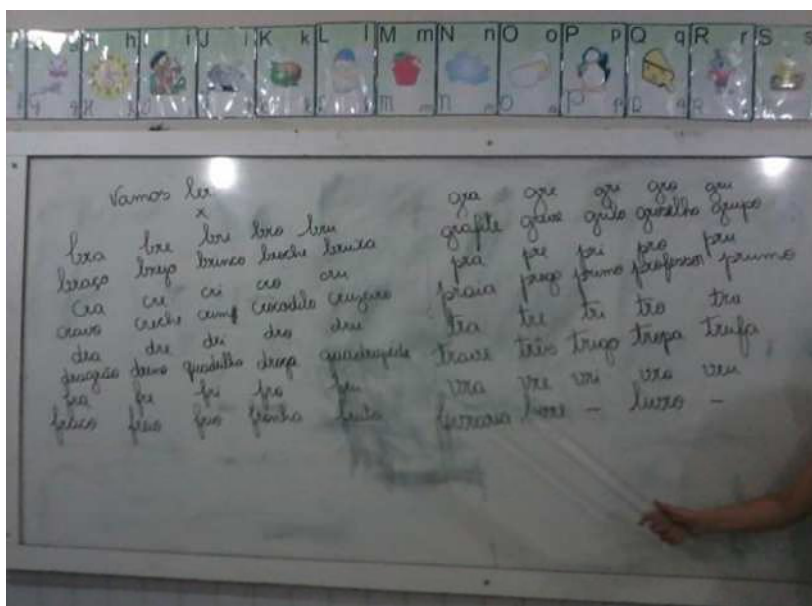 g H h I i J j K k L l M m N n O o P p Q q R r S s
Vamos ler
x
bra bre bri bro bru
braço brejo brinco broche bruxa
cra cre cri cro cru
cravo creche crocodilo cruzeiro
dra dre dri dro dru
dragão dreno quadrilha droga quadrúpede
fra fre fri fro fru
fraco freio frio fronha fruta
gra gre gri gro gru
grafite greve grilo groselha grupo
pra pre pri pro pru
praia prego primo professor prumo
tra tre tri tro tru
trave três trigo tropa trufa
vra vre vri vro vru
livraria livre - livro -